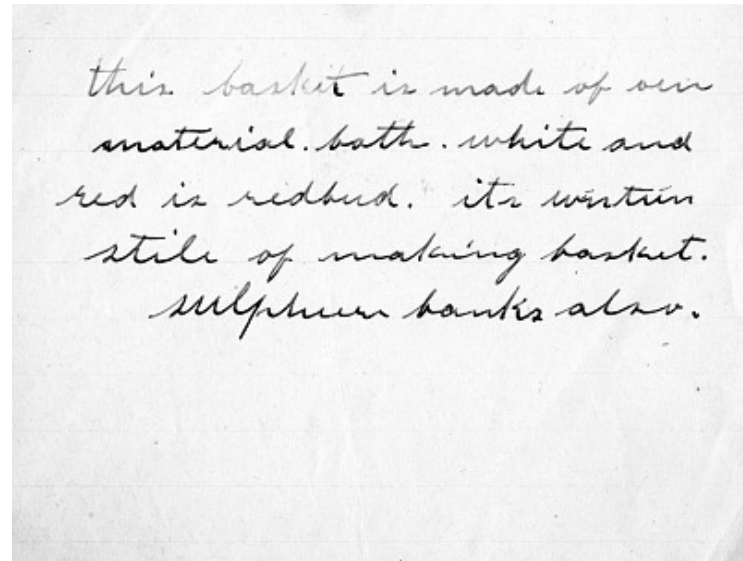 this basket is made of oen
material. both. white and
red is redbud. its westurn
stile of making basket.
sulphuer banks also.